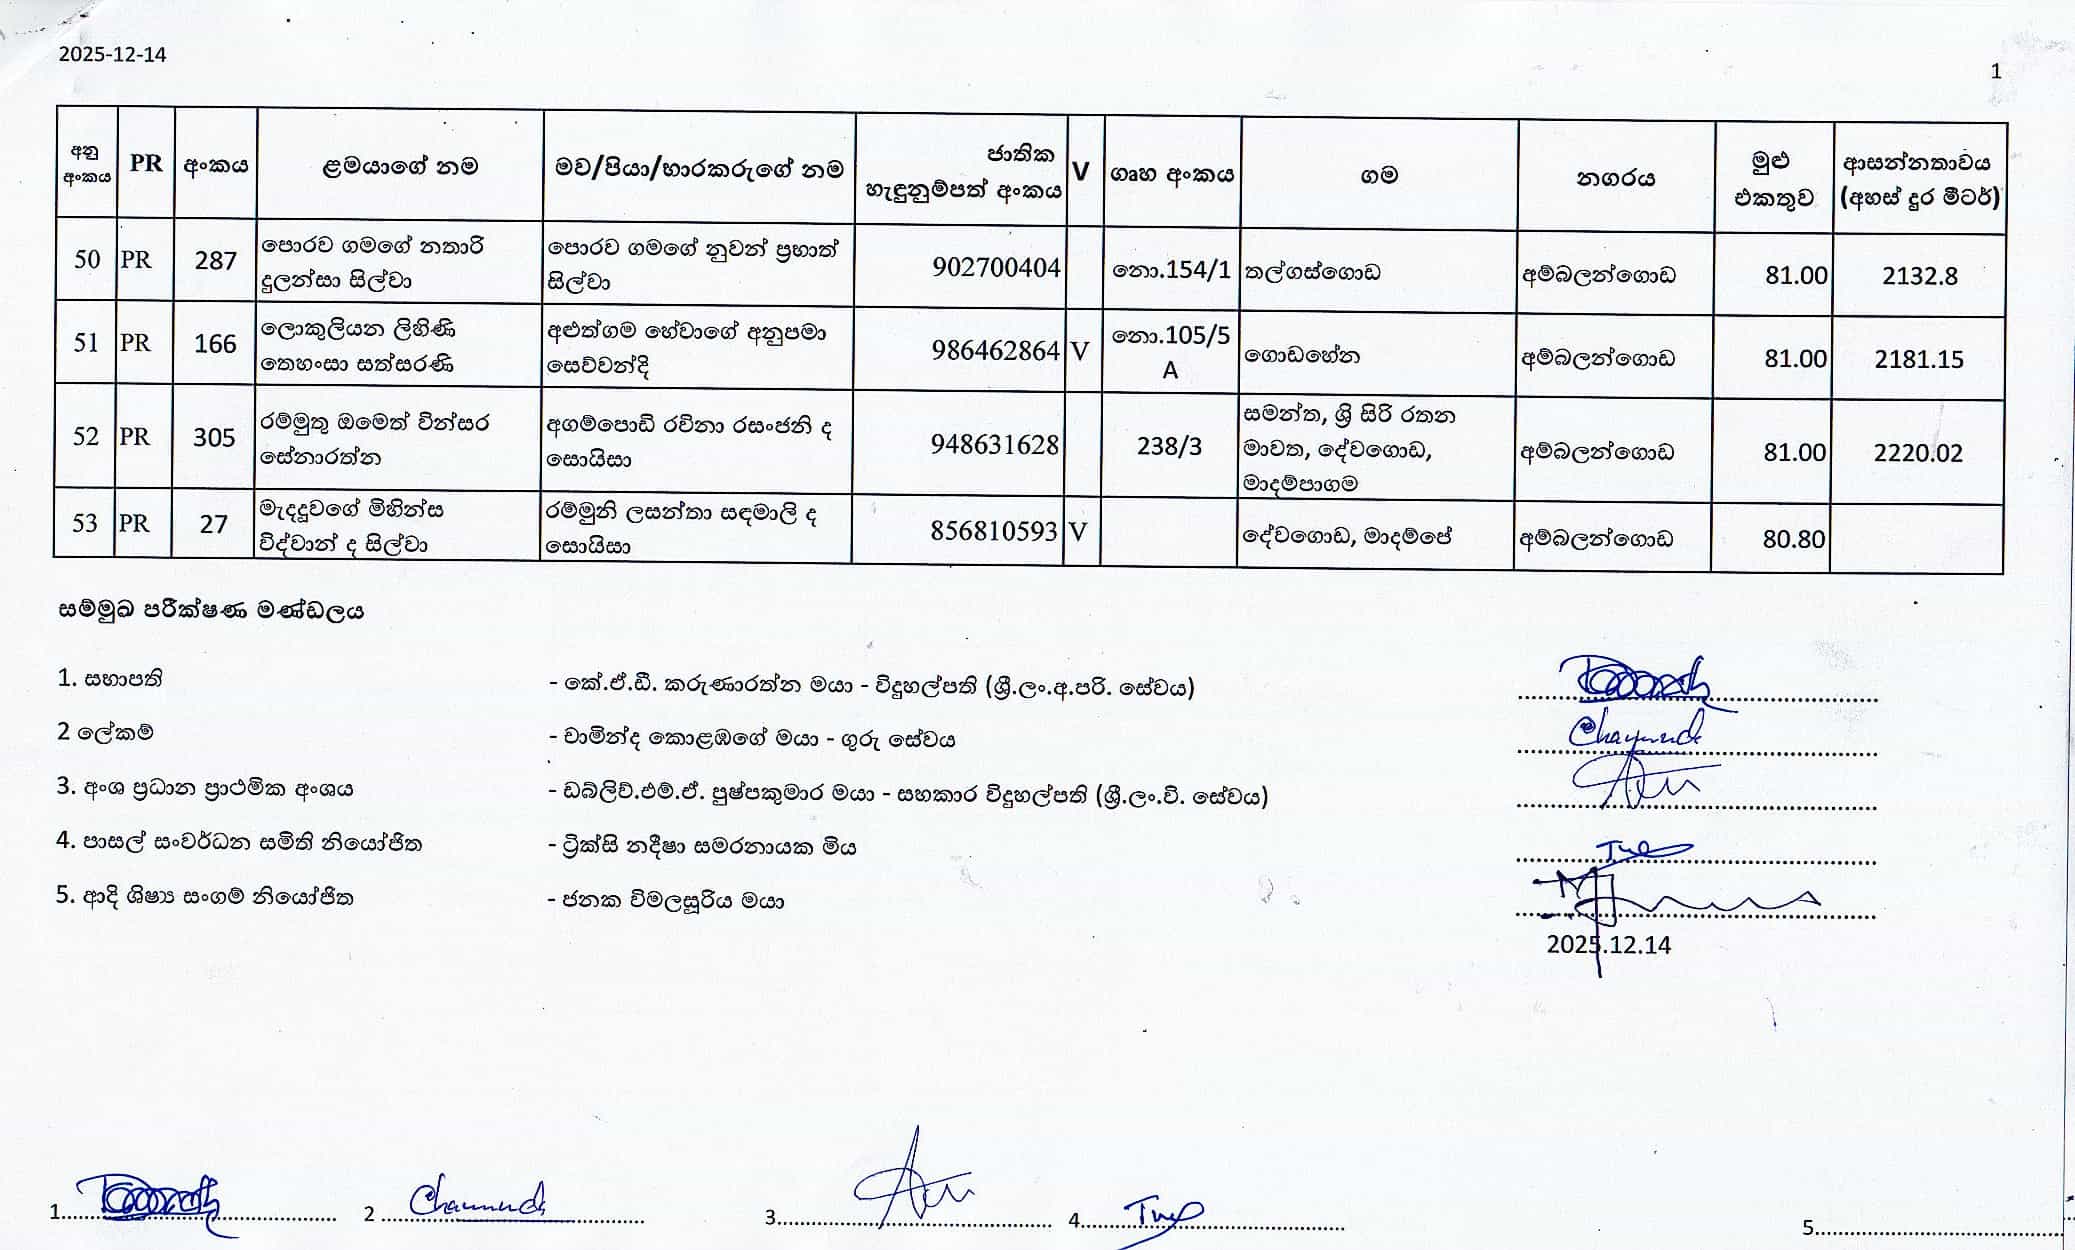 2025-12-14
1
අනු අංකය PR අංකය ළමයාගේ නම මව/පියා/භාරකරුගේ නම ජාතික හැඳුනුම්පත් අංකය V ගෘහ අංකය ගම නගරය මුළු එකතුව ආසන්නතාවය (අහස් දුර මීටර්)
50 PR 287 පොරව ගමගේ නතාරි දුලන්සා සිල්වා පොරව ගමගේ නුවන් ප්‍රභාත් සිල්වා 902700404 නො.154/1 තල්ගස්ගොඩ අම්බලන්ගොඩ 81.00 2132.8
51 PR 166 ලොකුලියන ලිහිණි තෙහංසා සත්සරණි අළුත්ගම හේවාගේ අනුපමා සෙව්වන්දි 986462864 V නො.105/5 A ගොඩහේන අම්බලන්ගොඩ 81.00 2181.15
52 PR 305 රම්මුතු ඔමෙත් වින්සර සේනාරත්න අගම්පොඩි රවිනා රසංජනි ද සොයිසා 948631628 238/3 සමන්ත, ශ්‍රි සිරි රතන මාවත, දේවගොඩ, මාදම්පාගම අම්බලන්ගොඩ 81.00 2220.02
53 PR 27 මැදදූවගේ මිහින්ස විද්වාන් ද සිල්වා රම්මුනි ලසන්තා සඳමාලි ද සොයිසා 856810593 V දේවගොඩ, මාදම්පේ අම්බලන්ගොඩ 80.80
සම්මුඛ පරීක්ෂණ මණ්ඩලය
1. සභාපති - කේ.ඒ.ඩී. කරුණාරත්න මයා - විදුහල්පති (ශ්‍රී.ලං.අ.පරි. සේවය)
2 ලේකම් - චාමින්ද කොළඹගේ මයා - ගුරු සේවය
3. අංශ ප්‍රධාන ප්‍රාථමික අංශය - ඩබ්ලිව්.එම්.ඒ. පුෂ්පකුමාර මයා - සහකාර විදුහල්පති (ශ්‍රී.ලං.වි. සේවය)
4. පාසල් සංවර්ධන සමිති නියෝජිත - ට්‍රික්සි නදීෂා සමරනායක මිය
5. ආදි ශිෂ්‍ය සංගම් නියෝජිත - ජනක විමලසූරිය මයා
2025.12.14
1 2 3 4. 5